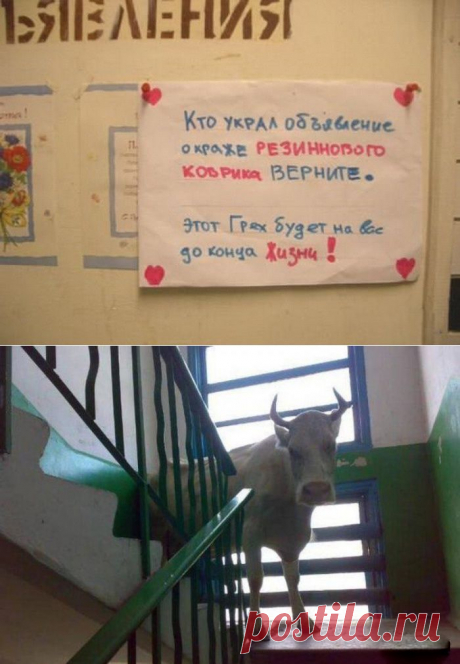 ЪЯВЛЕНИЯ
Кто украл объявление
о краже РЕЗИННОВОГО
КОВРИКА ВЕРНИТЕ.
этот Грех будет на вас
до конца Жизни!
postila.ru